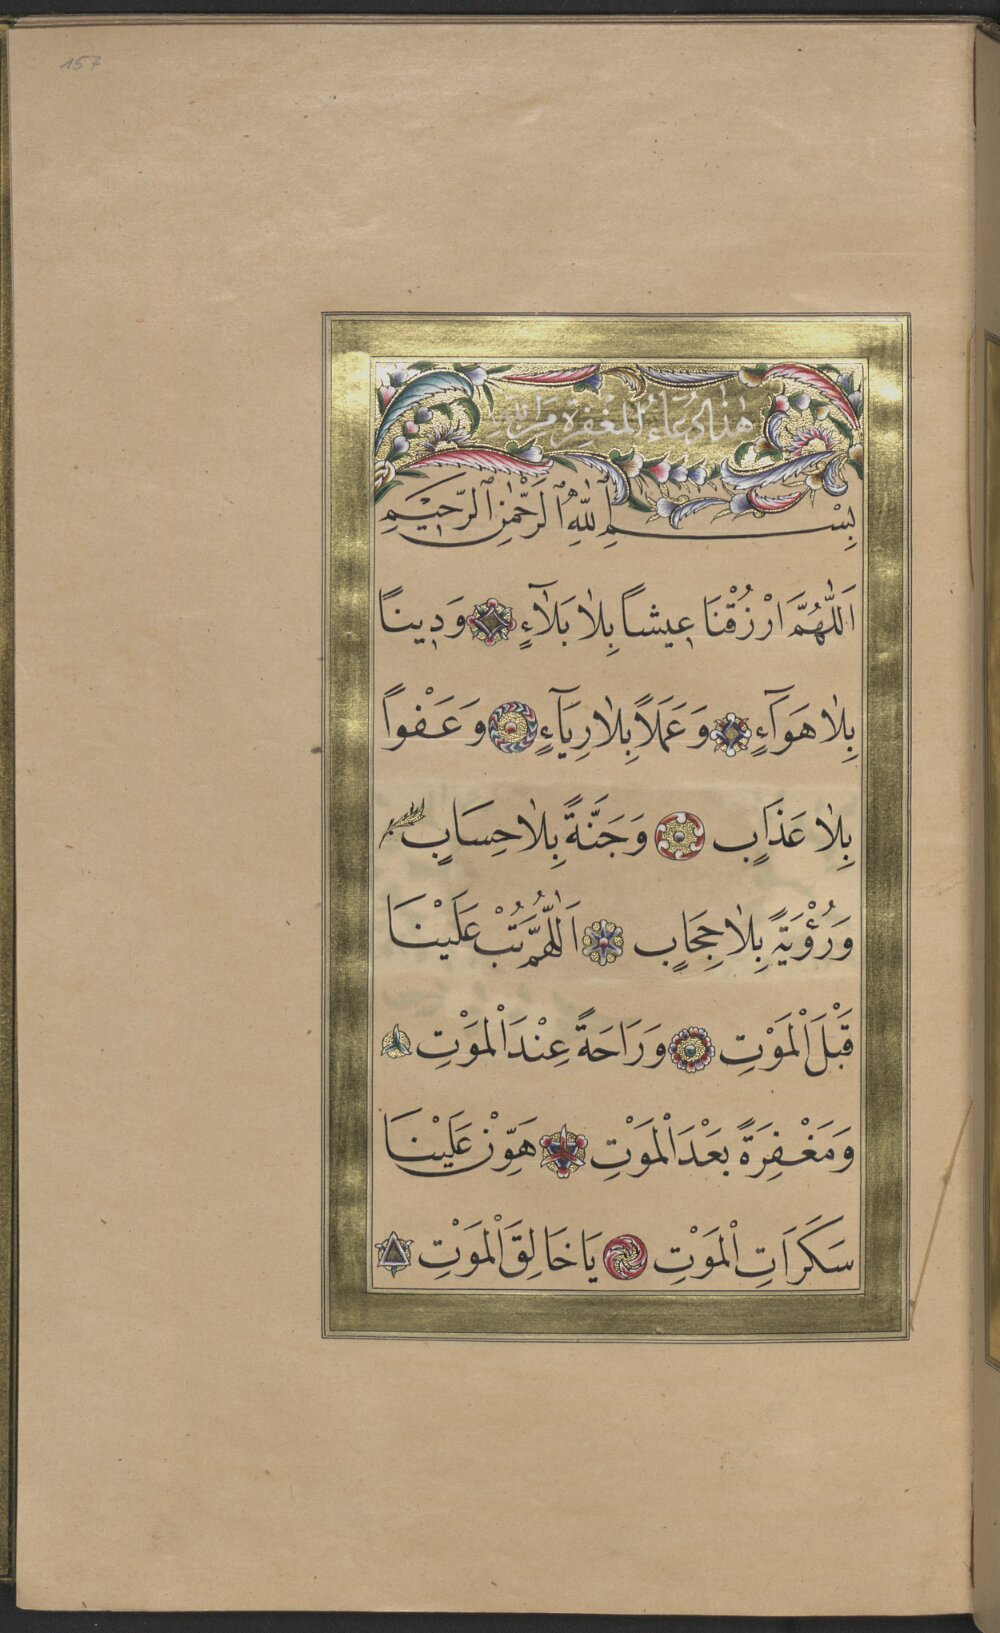 157
هٰذَا دُعَاءُ الْمَغْفِرَةِ مِنَ اللّٰهِ
بِسْمِ اللّٰهِ الرَّحْمٰنِ الرَّحِيْمِ
اَللّٰهُمَّ ارْزُقْنَا عِيشاً بِلٰا بَلَآءٍ وَدِينًا
بِلٰا هَوَآءٍ وَعَمَلاً بِلٰا رِيَآءٍ وَعَفْواً
بِلٰا عَذَابٍ وَجَنَّةً بِلٰا حِسَابٍ
وَرُؤْيَةً بِلٰا حِجَابٍ اَللّٰهُمَّ تُبْ عَلَيْنَا
قَبْلَ الْمَوْتِ وَرَاحَةً عِنْدَ الْمَوْتِ
وَمَغْفِرَةً بَعْدَ الْمَوْتِ هَوِّنْ عَلَيْنَا
سَكَرَاتِ الْمَوْتِ يَا خَالِقَ الْمَوْتِ